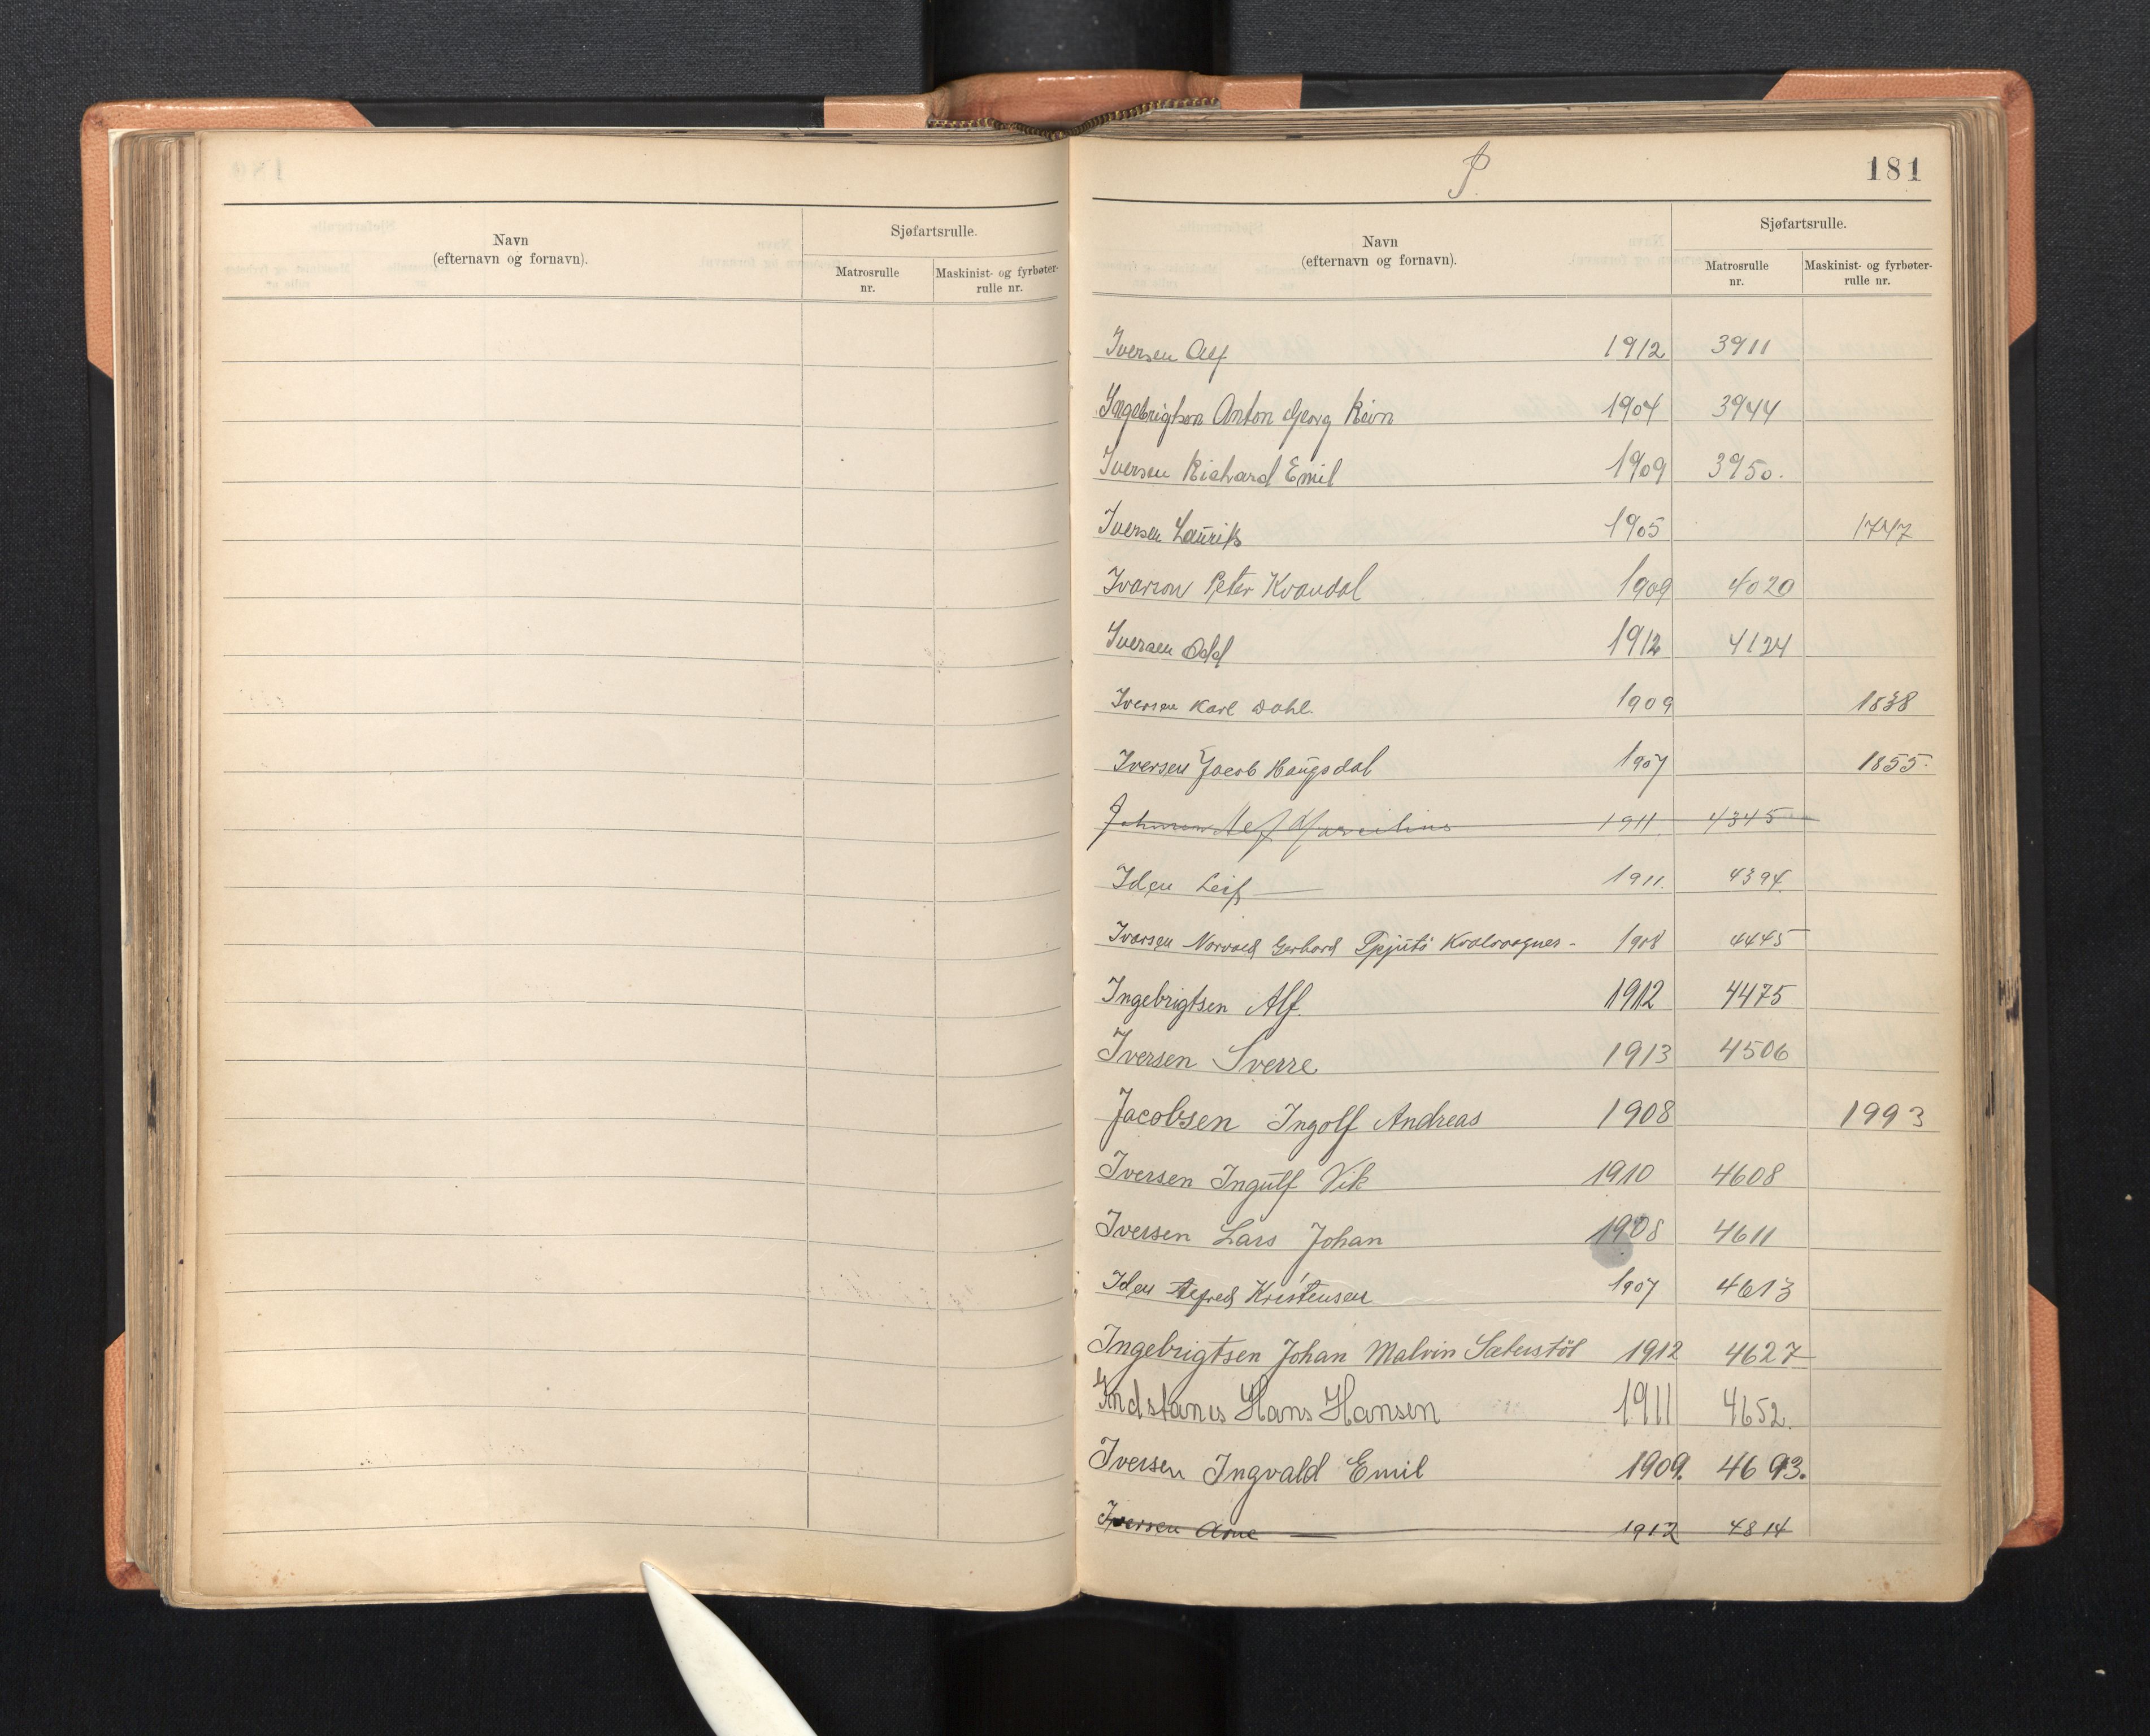 Navn
(efternavn og fornavn).
Sjøfartsrulle.
Matrosrulle
nr.
Maskinist- og fyrbøter-
rulle nr.
I.
181
Navn
(efternavn og fornavn).
Sjøfartsrulle.
Matrosrulle
nr.
Maskinist- og fyrbøter-
rulle nr.
Iversen Alf 1912 3911
Ingebrigtsen Anton Georg Rein 1904 3944
Iversen Richard Emil 1909 3950.
Iversen Laurits 1905 1747
Ivarson Peter Kvandal 1909 4020
Iversen Odd 1912 4124
Iversen Karl Dahl. 1909 1838
Iversen Jacob Haugsdal 1907 1855.
Johnsen Alf 1911. 4345
Iden Leif 1911. 4394.
Ivarsen Norvald Gerhard Kvalvaagnes - 1908 4445
Ingebrigtsen Alf. 1912 4475
Iversen Sverre 1913 4506
Jacobsen Ingolf Andreas 1908 1993
Iversen Ingulf Vik 1910 4608
Iversen Lars Johan 1908 4611
Iden Alfred Kristensen 1907 4613
Ingebrigtsen Johan Malvin Sæterstöl 1912 4627
Indstanes Hans Hansen 1911 4652.
Iversen Ingvald Emil 1909. 4693.
Iversen Arne 1912 4814